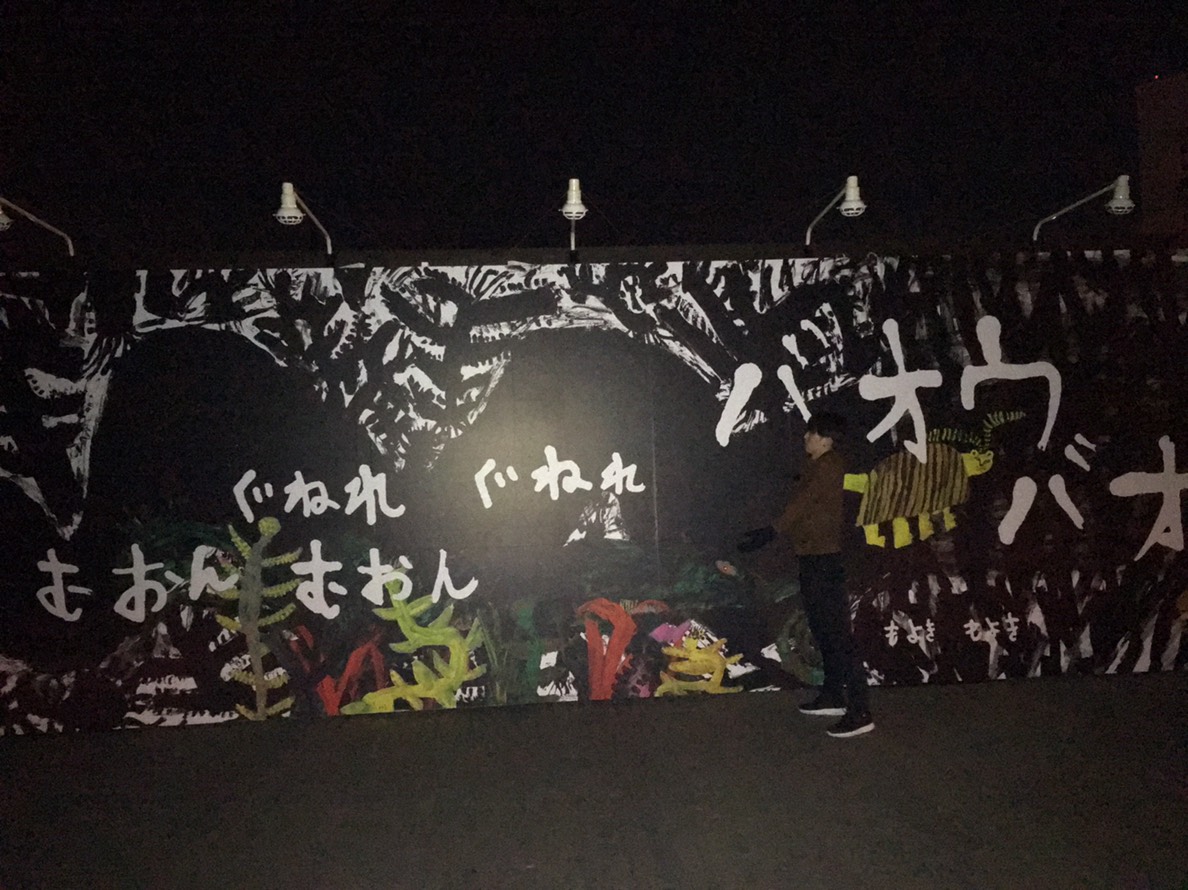 ぐねれ ぐねれ
むおん むおん
バオウ
バオ
もよき もよき